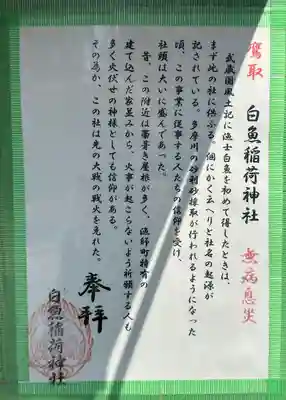 鷺取
白魚稲荷神社
無病息災
武蔵国風土記に漁士白魚を初めて得したときは、
まず此の社に供ふる。仍にかく云へりと社名の起源が
記されている。多摩川の砂利砂採取が行われるようになった
頃、この事業に従事する人たちの信仰を受け、
社頭は大いに盛んであった。
昔、この附近は藁葺き屋根が多く、漁師町特有の
建て込んだ家並みから、火事が起こらないよう祈願する人も
多く火伏せの神様としても信仰がある。
その為か、この社は先の大戦の戦火も免れた。
奉拝
白魚稲荷神社